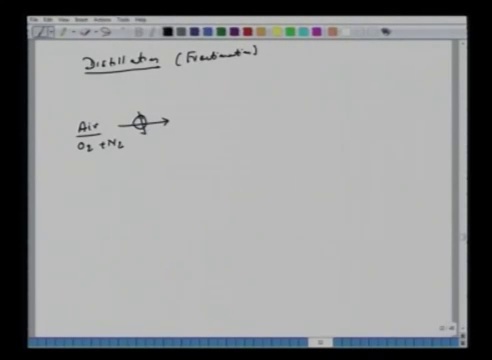 File Edit View Insert Actions Tools Help
Distillation (Fractionation)
Air
O2 + N2